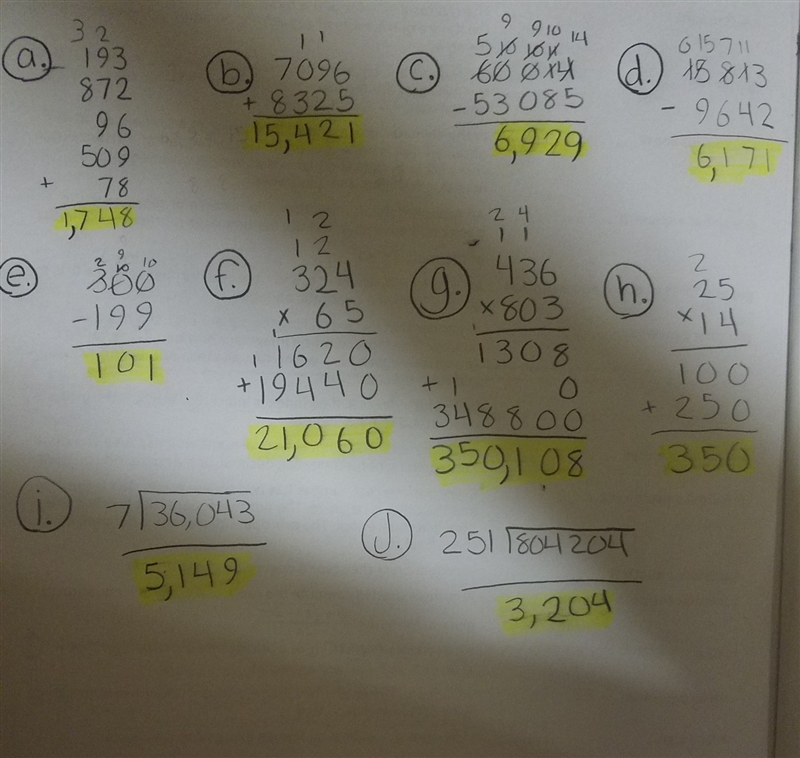 a.
3 2
193
872
96
509
+ 78
1,748
b.
1 1
7096
+ 8325
15,421
c.
9 9 10
5 10 10 11 14
60 014
- 53085
6,929
d.
6 15 7 11
15 813
- 9642
6,171
e.
9
2 10 10
300
- 199
101
f.
1 2
1 2
324
× 65
1
1 1620
+ 19440
21,060
g.
2 4
1 1
436
× 803
1
1308
+ 1 0
348800
350,108
h.
2
25
× 14
100
+ 250
350
i.
7 36,043
5,149
J.
251 804204
3,204